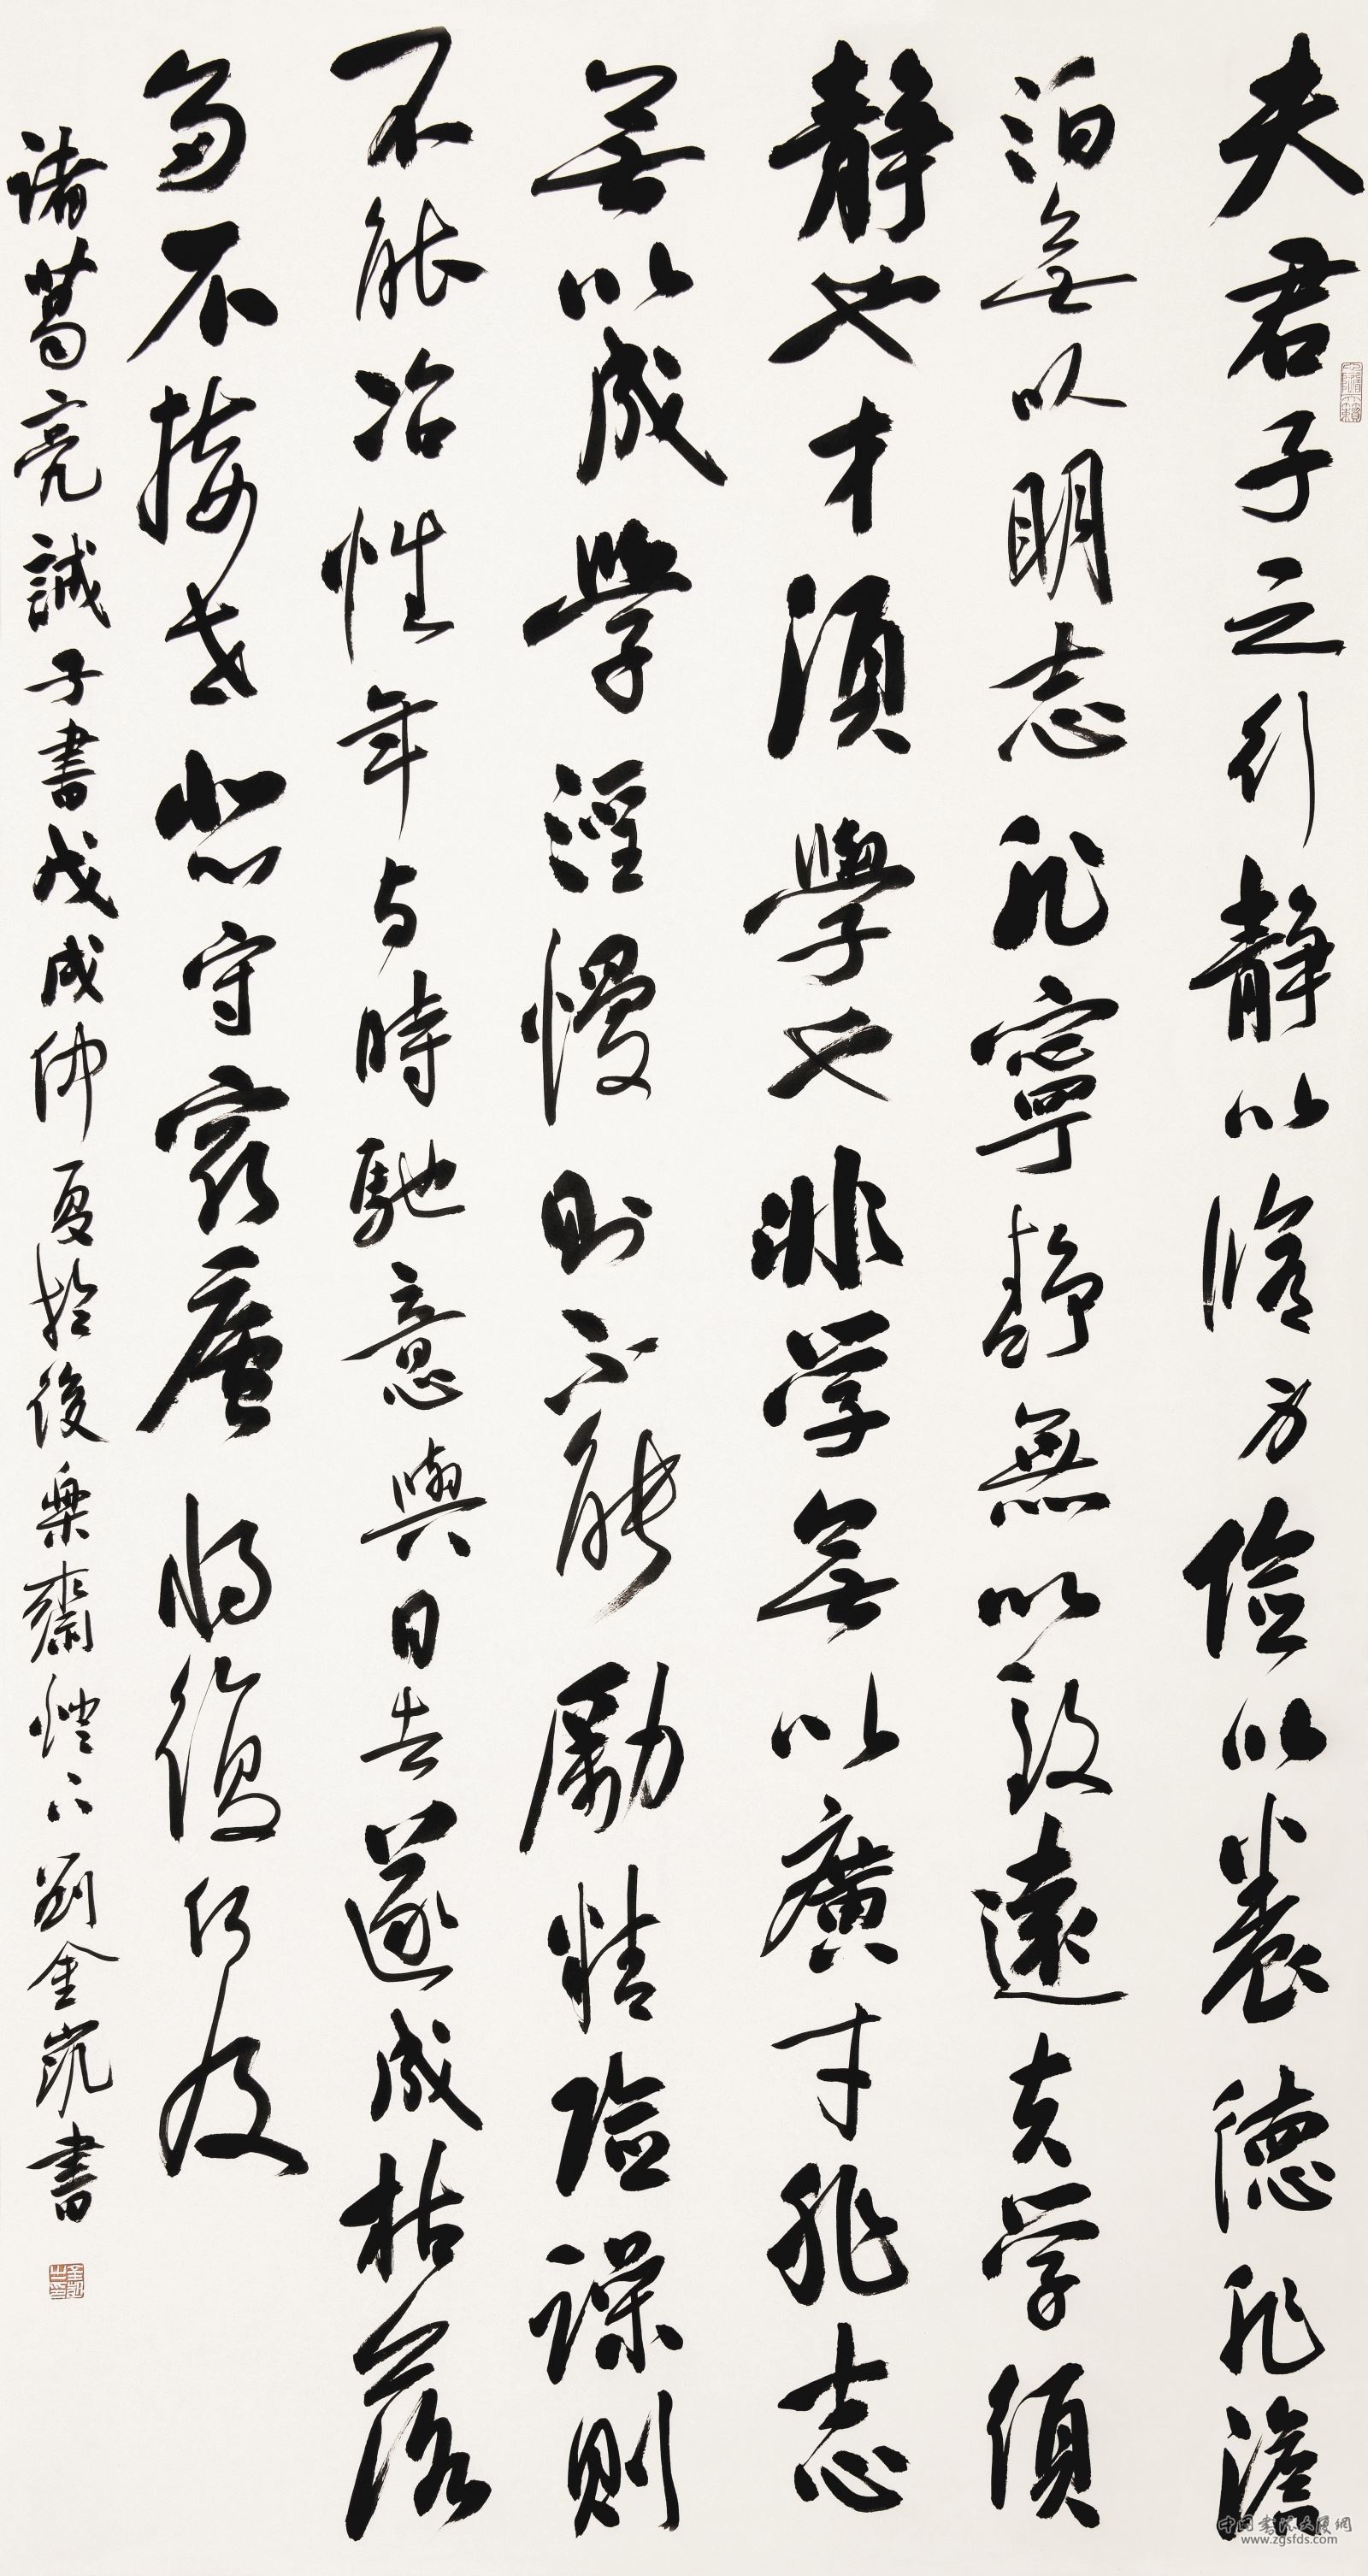 夫君子之行靜以修身儉以養德非澹
泊無以明志非寧靜無以致遠夫學須
靜也才須學也非學無以廣才非志
無以成學淫慢則不能勵精險躁則
不能冶性年与時馳意與日去遂成枯落
多不接世悲守窮廬將復何及
諸葛亮誡子書戊戌仲夏於後樂齋燈下劉金凱書
中国書法大廈網
www.zgsfds.com